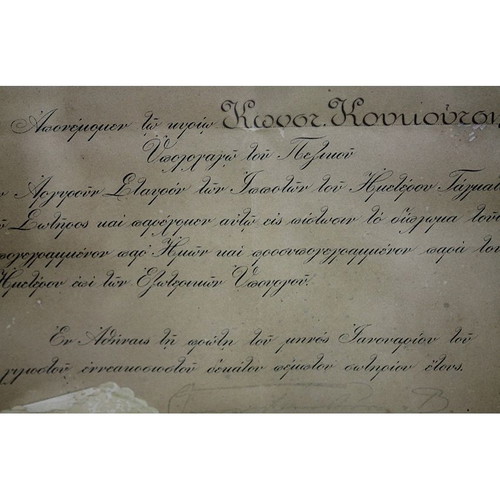 Ἀπονέμομεν τῷ κυρίῳ Κωνστ. Κουκιούτση
Ὑπολοχαγῷ τοῦ Πεζικοῦ
Ἀργυροῦν Σταυρόν τῶν Ἱπποτῶν τοῦ Ἡμετέρου Τάγματ
Σωτῆρος καὶ παρέχομεν αὐτῷ εἰς πίστωσιν τὸ δίπλωμα τοῦτ
πογεγραμμένον παρ' Ἡμῶν καὶ προσυπογεγραμμένον παρὰ τοῦ
Ἡμετέρου ἐπὶ τῶν Ἐξωτερικῶν Ὑπουργοῦ.
Ἐν Ἀθήναις τῇ πρώτῃ τοῦ μηνὸς Ἰανουαρίου τοῦ
χιλιοστοῦ ἐννεακοσιοστοῦ δεκάτου πέμπτου σωτηρίου ἔτους.